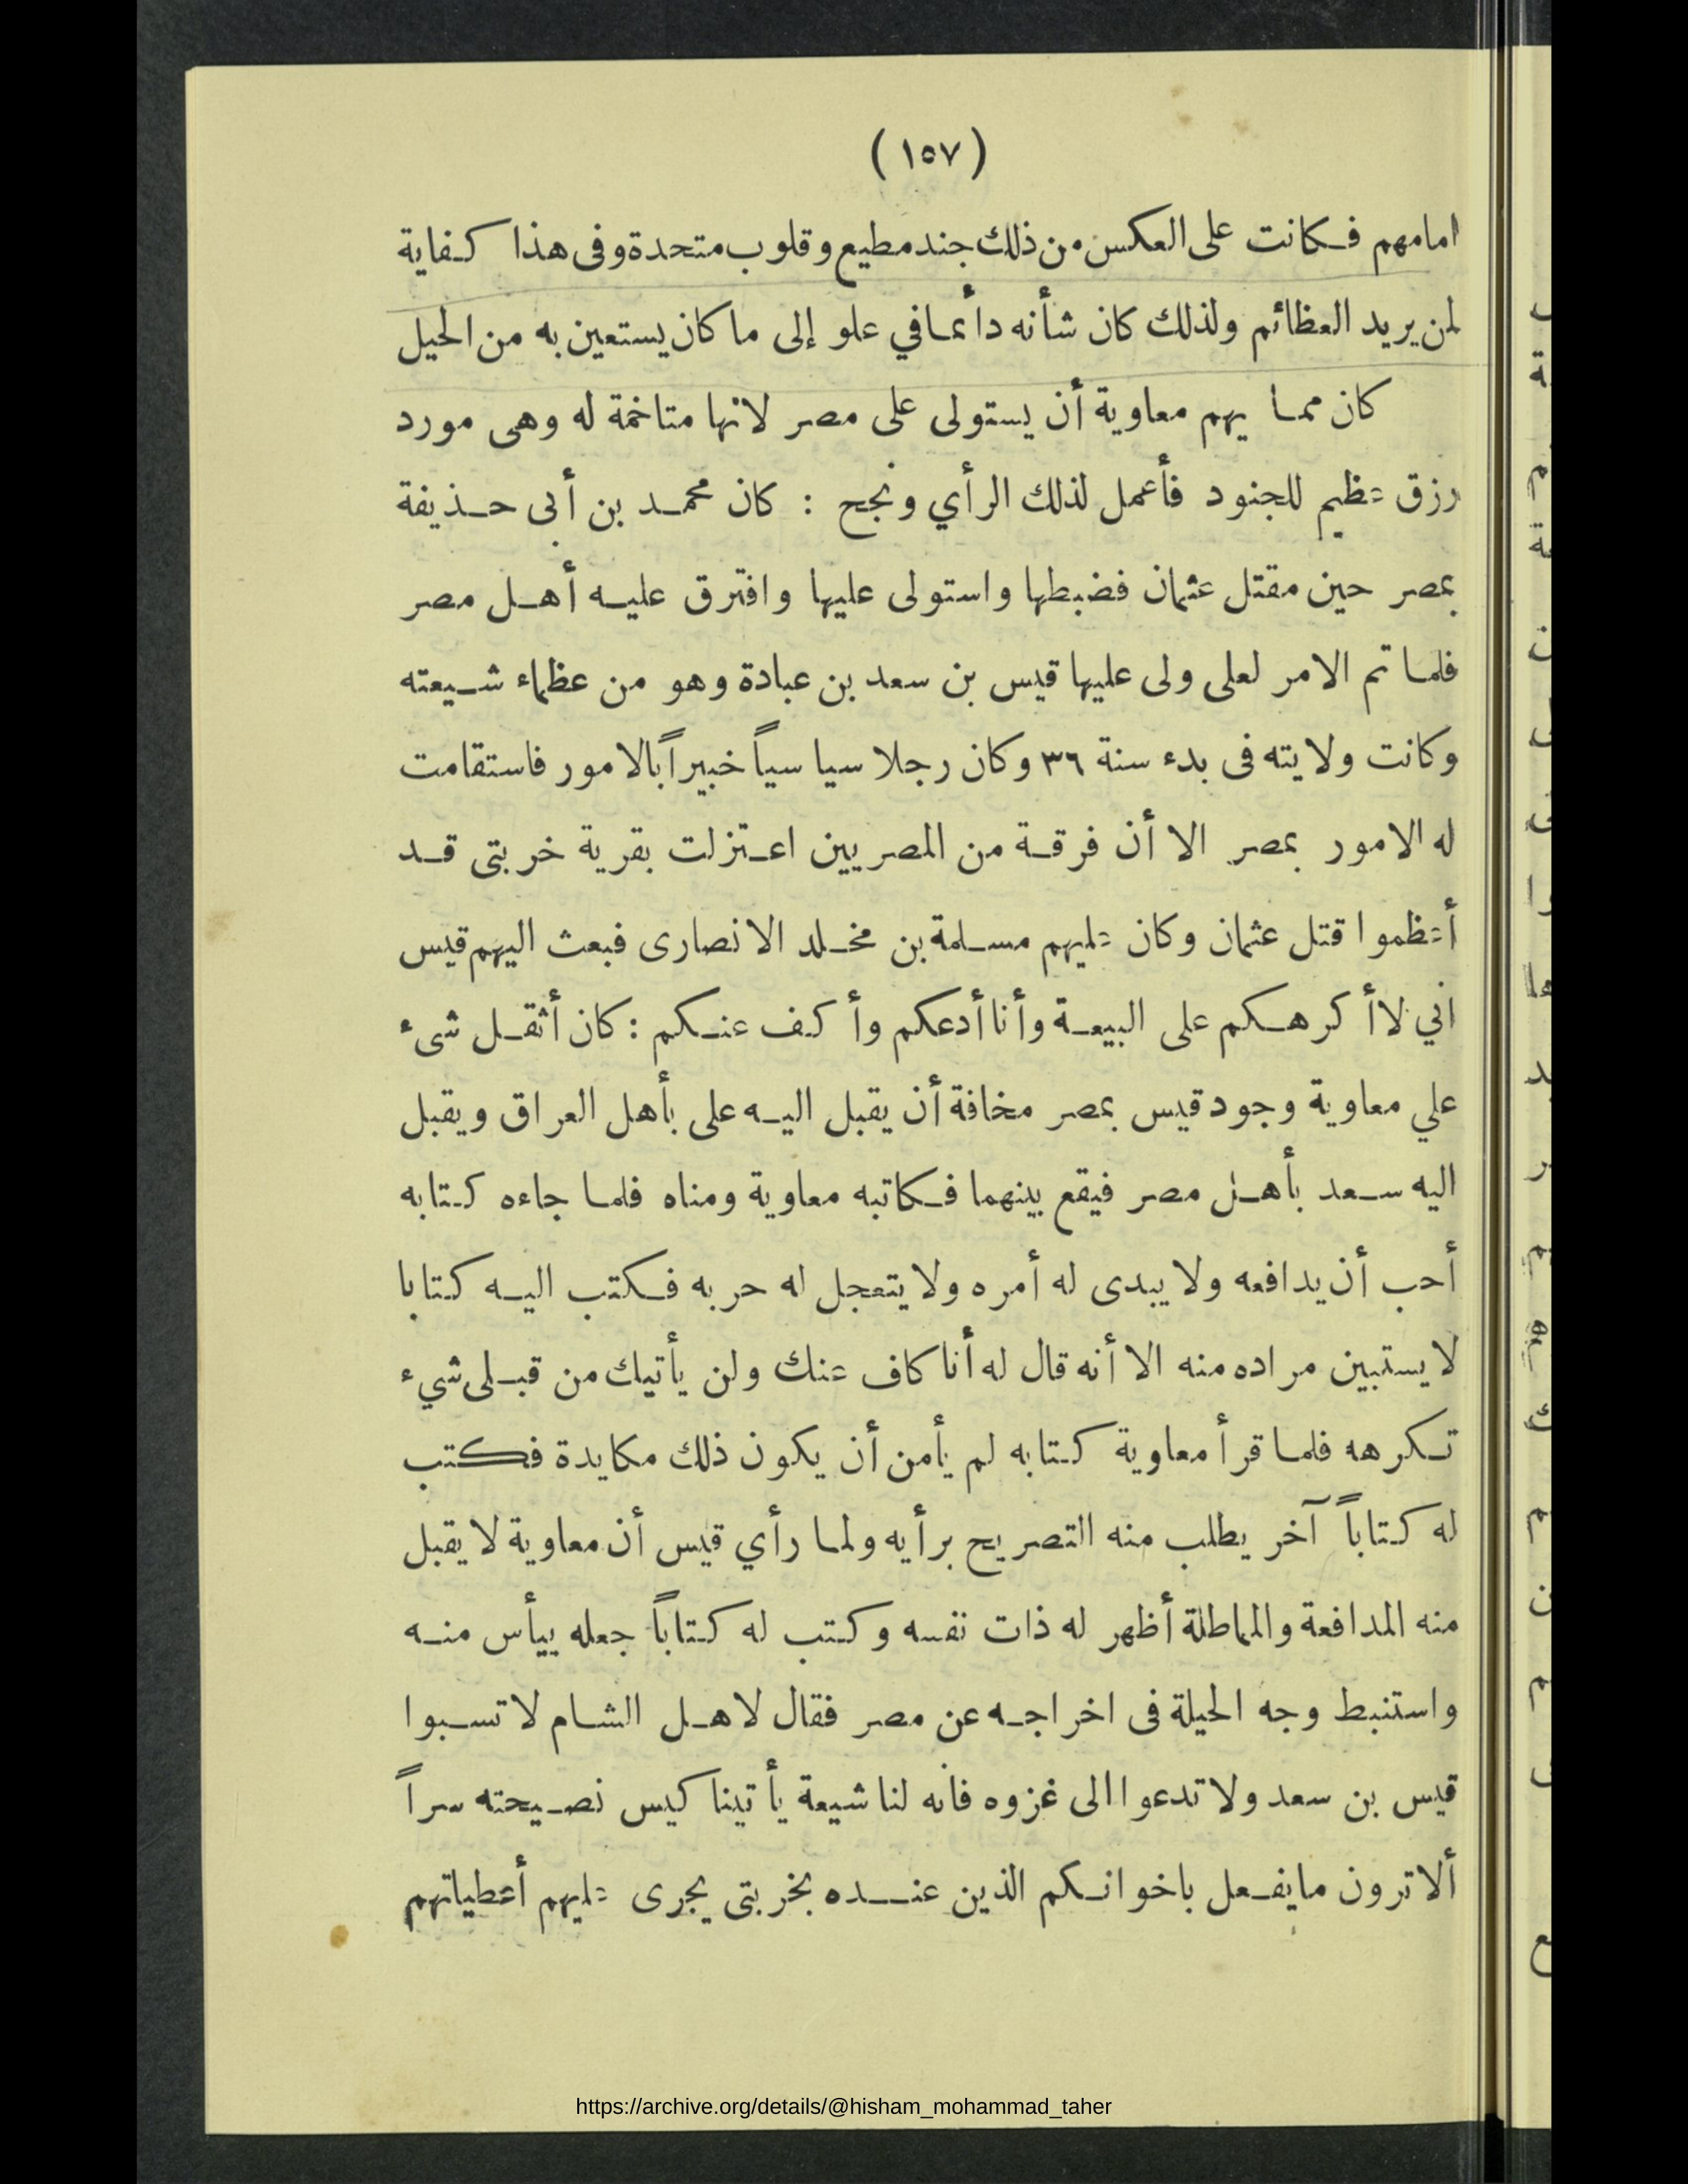 (١٥٧)
امامهم فكانت على العكس من ذلك جند مطيع وقلوب متحدة وفى هذا كفاية
لمن يريد العظائم ولذلك كان شأنه دائما في علو إلى ما كان يستعين به من الحيل
كان مما يهم معاوية أن يستولى على مصر لانها متاخمة له وهى مورد
رزق عظيم للجنود فأعمل لذلك الرأي ونجح : كان محمد بن أبى حذيفة
بمصر حين مقتل عثمان فضبطها واستولى عليها وافترق عليه أهل مصر
فلما تم الامر لعلى ولى عليها قيس بن سعد بن عبادة وهو من عظماء شيعته
وكانت ولايته فى بدء سنة ٣٦ وكان رجلا سياسياً خبيراً بالامور فاستقامت
له الامور بمصر الا أن فرقة من المصريين اعتزلت بقرية خربتى قد
أعظموا قتل عثمان وكان عليهم مسلمة بن مخلد الانصارى فبعث اليهم قيس
اني لا أكرهكم على البيعة وأنا أدعكم وأكف عنكم : كان أثقل شىء
علي معاوية وجود قيس بمصر مخافة أن يقبل اليه على بأهل العراق ويقبل
اليه سعد بأهل مصر فيقع بينهما فكاتبه معاوية ومناه فلما جاءه كتابه
أحب أن يدافعه ولا يبدى له أمره ولا يتعجل له حربه فكتب اليه كتابا
لا يستبين مراده منه الا أنه قال له أنا كاف عنك ولن يأتيك من قبلى شيء
تكرهه فلما قرأ معاوية كتابه لم يأمن أن يكون ذلك مكايدة فكتب
له كتاباً آخر يطلب منه التصريح برأيه ولما رأي قيس أن معاوية لا يقبل
منه المدافعة والمماطلة أظهر له ذات نفسه وكتب له كتاباً جعله ييأس منه
واستنبط وجه الحيلة فى اخراجه عن مصر فقال لاهل الشام لا تسبوا
قيس بن سعد ولا تدعوا الى غزوه فانه لنا شيعة يأتينا كيس نصيحته سراً
ألا ترون ما يفعل باخوانكم الذين عنده بخربتى يجرى عليهم أعطياتهم
https://archive.org/details/@hisham_mohammad_taher